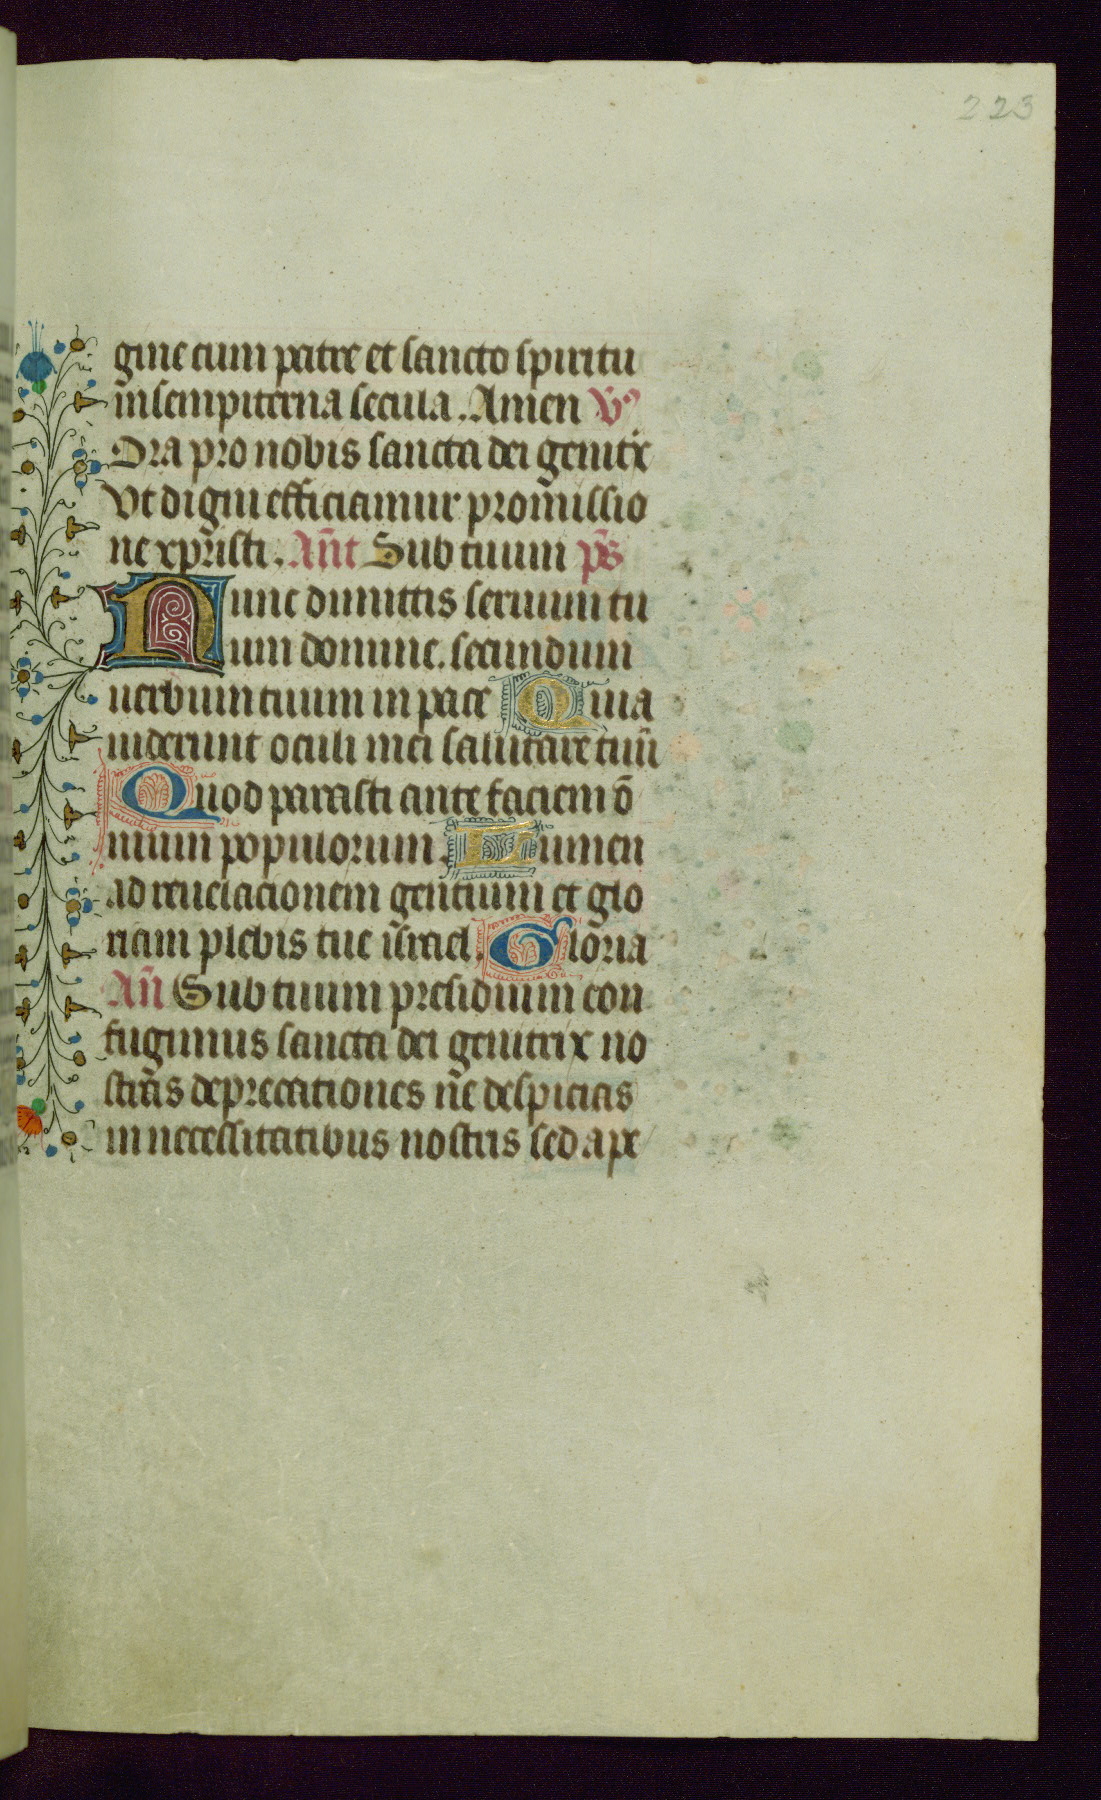 223
gine cum patre et sancto spiritu
in sempiterna secula. Amen V°
Ora pro nobis sancta dei genitrix
Vt digni efficiamur promissio
ne xpristi. Ant Sub tuum ps
Nunc dimittis seruum tu
um domine. secundum
uerbum tuum in pace Quia
uiderunt oculi mei salutare tuū
Quod parasti ante faciem ō
nium populorum. Lumen
ad reuelacionem gentium et glo
riam plebis tue isrrael. Gloria
Añ Sub tuum presidium con
fugimus sancta dei genitrix no
stras deprecationes ne despicias
in necessitatibus nostris sed a pe